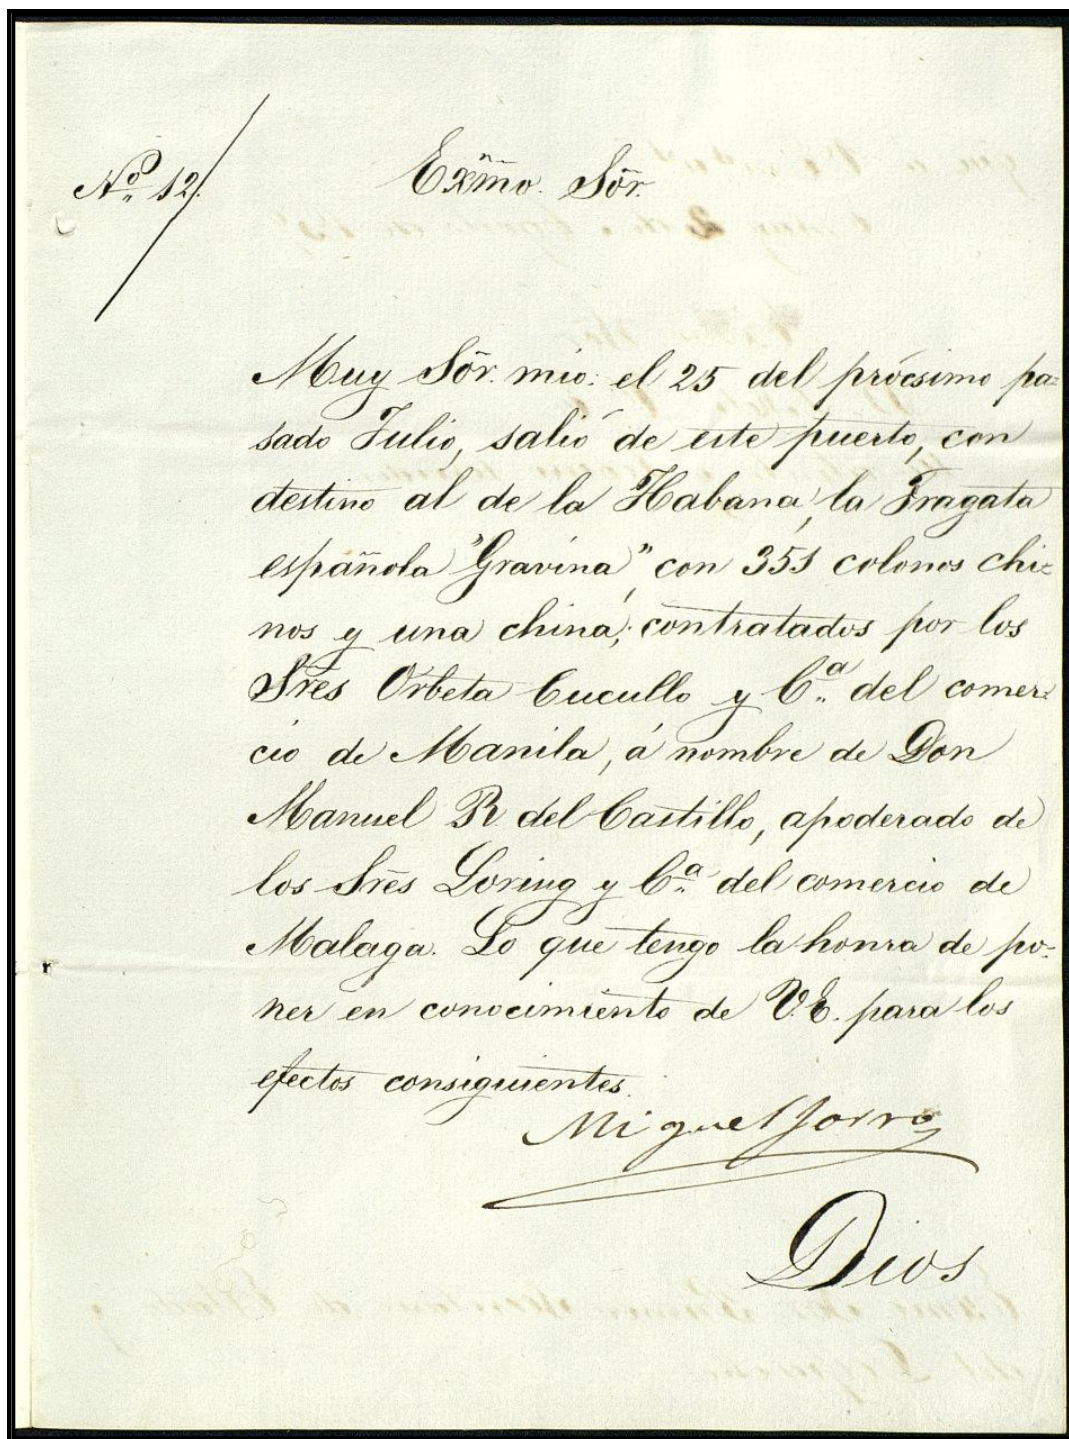 Nº 12.
Exm̃o. Sõr.
Muy Sõr. mio: el 25 del procsimo pa=
sado Julio, salió de este puerto, con
destino al de la Habana, la Fragata
española "Gravina", con 351 colonos chi=
nos y una china; contratados por los
Sres Orbeta Cucullo y Cª. del comer=
cio de Manila, á nombre de Don
Manuel R. del Castillo, apoderado de
los Sres Loring y Cª. del comercio de
Malaga. Lo que tengo la honra de po=
ner en conocimiento de V.E. para los
efectos consiguientes.
Miguel Jorro
Dios